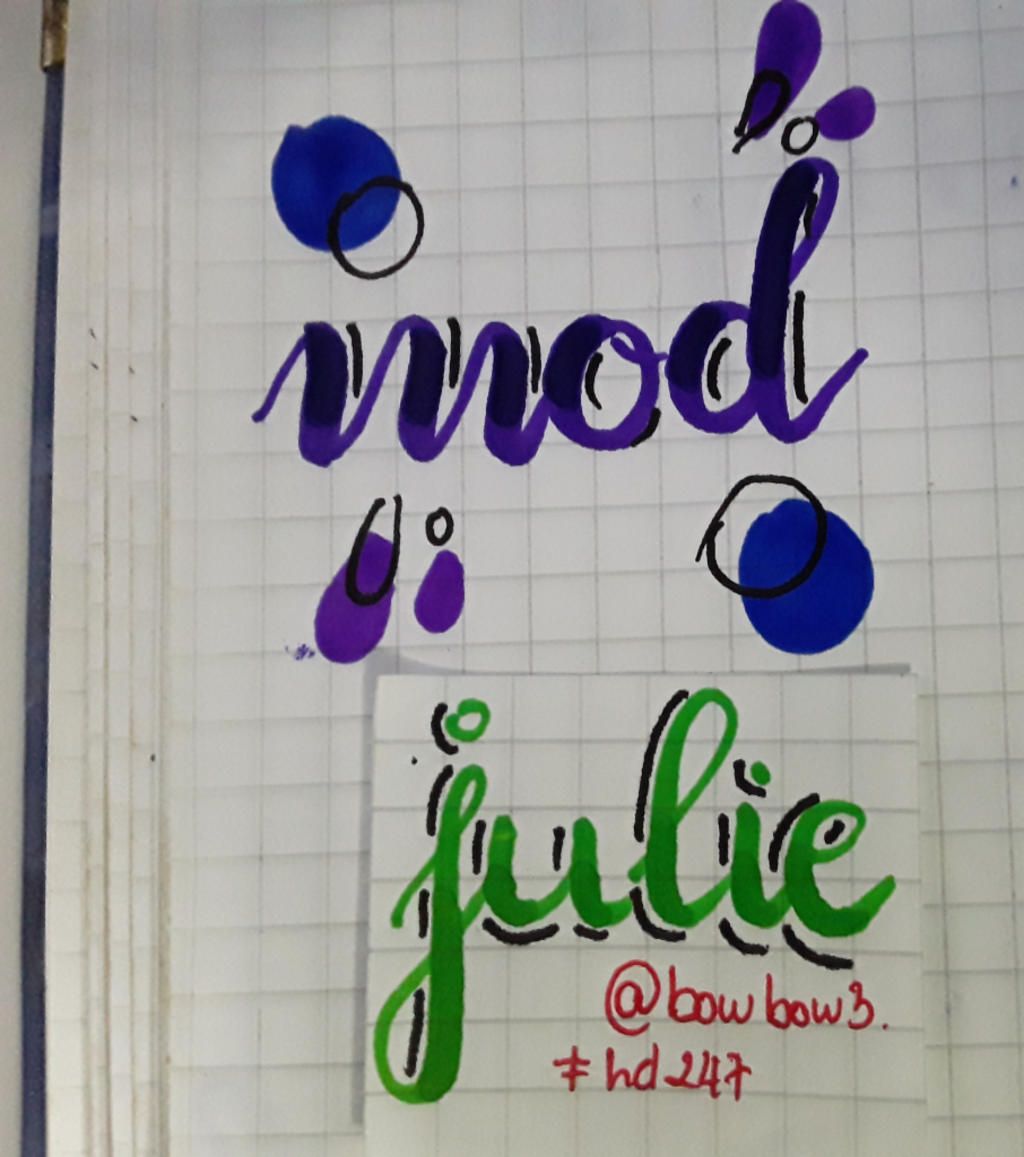 mod
julie
@bowbow3.
#hd247